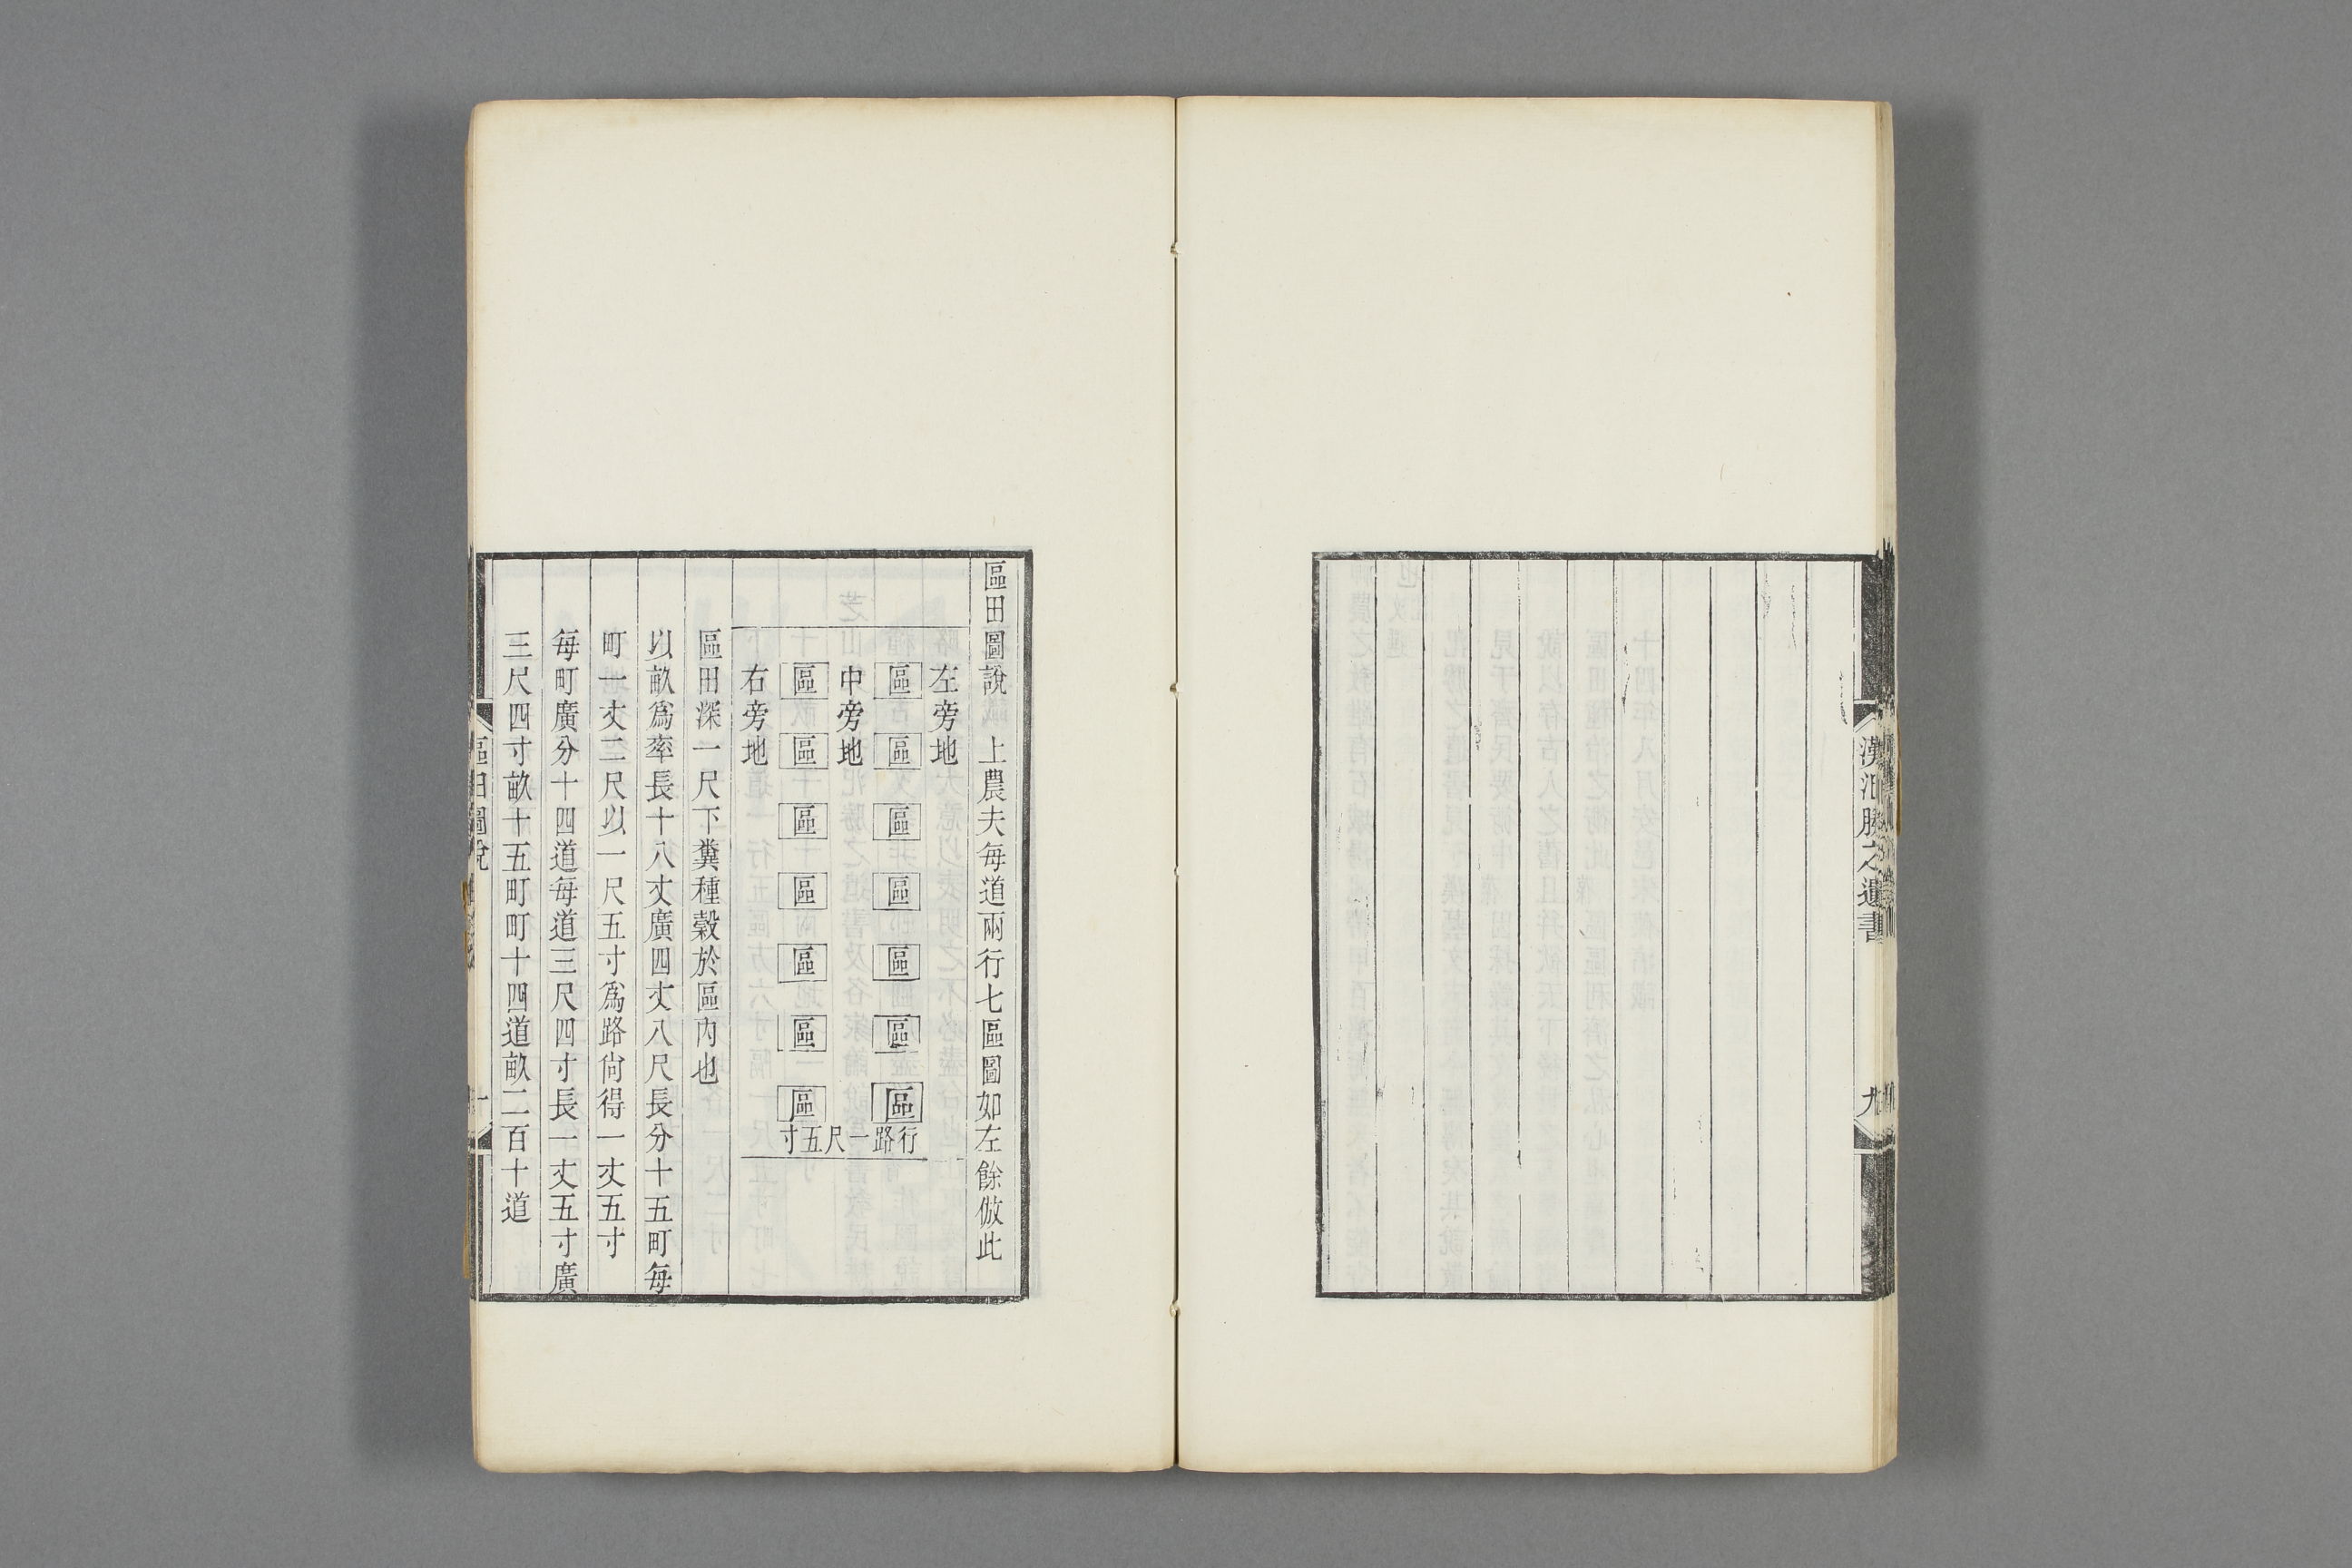 漢氾勝之遺書
九
區田圖說 上農夫每道兩行七區圖如左餘倣此
左旁地
區 區 區 區 區 區 區
中旁地
區 區 區 區 區 區 區
右旁地
行路一尺五寸
區田深一尺下糞種糓於區內也
以畝爲率長十八丈廣四丈八尺長分十五町每
町一丈二尺以一尺五寸爲路尙得一丈五寸
每町廣分十四道每道三尺四寸長一丈五寸廣
三尺四寸畝十五町町十四道畝二百十道
區田圖說
一